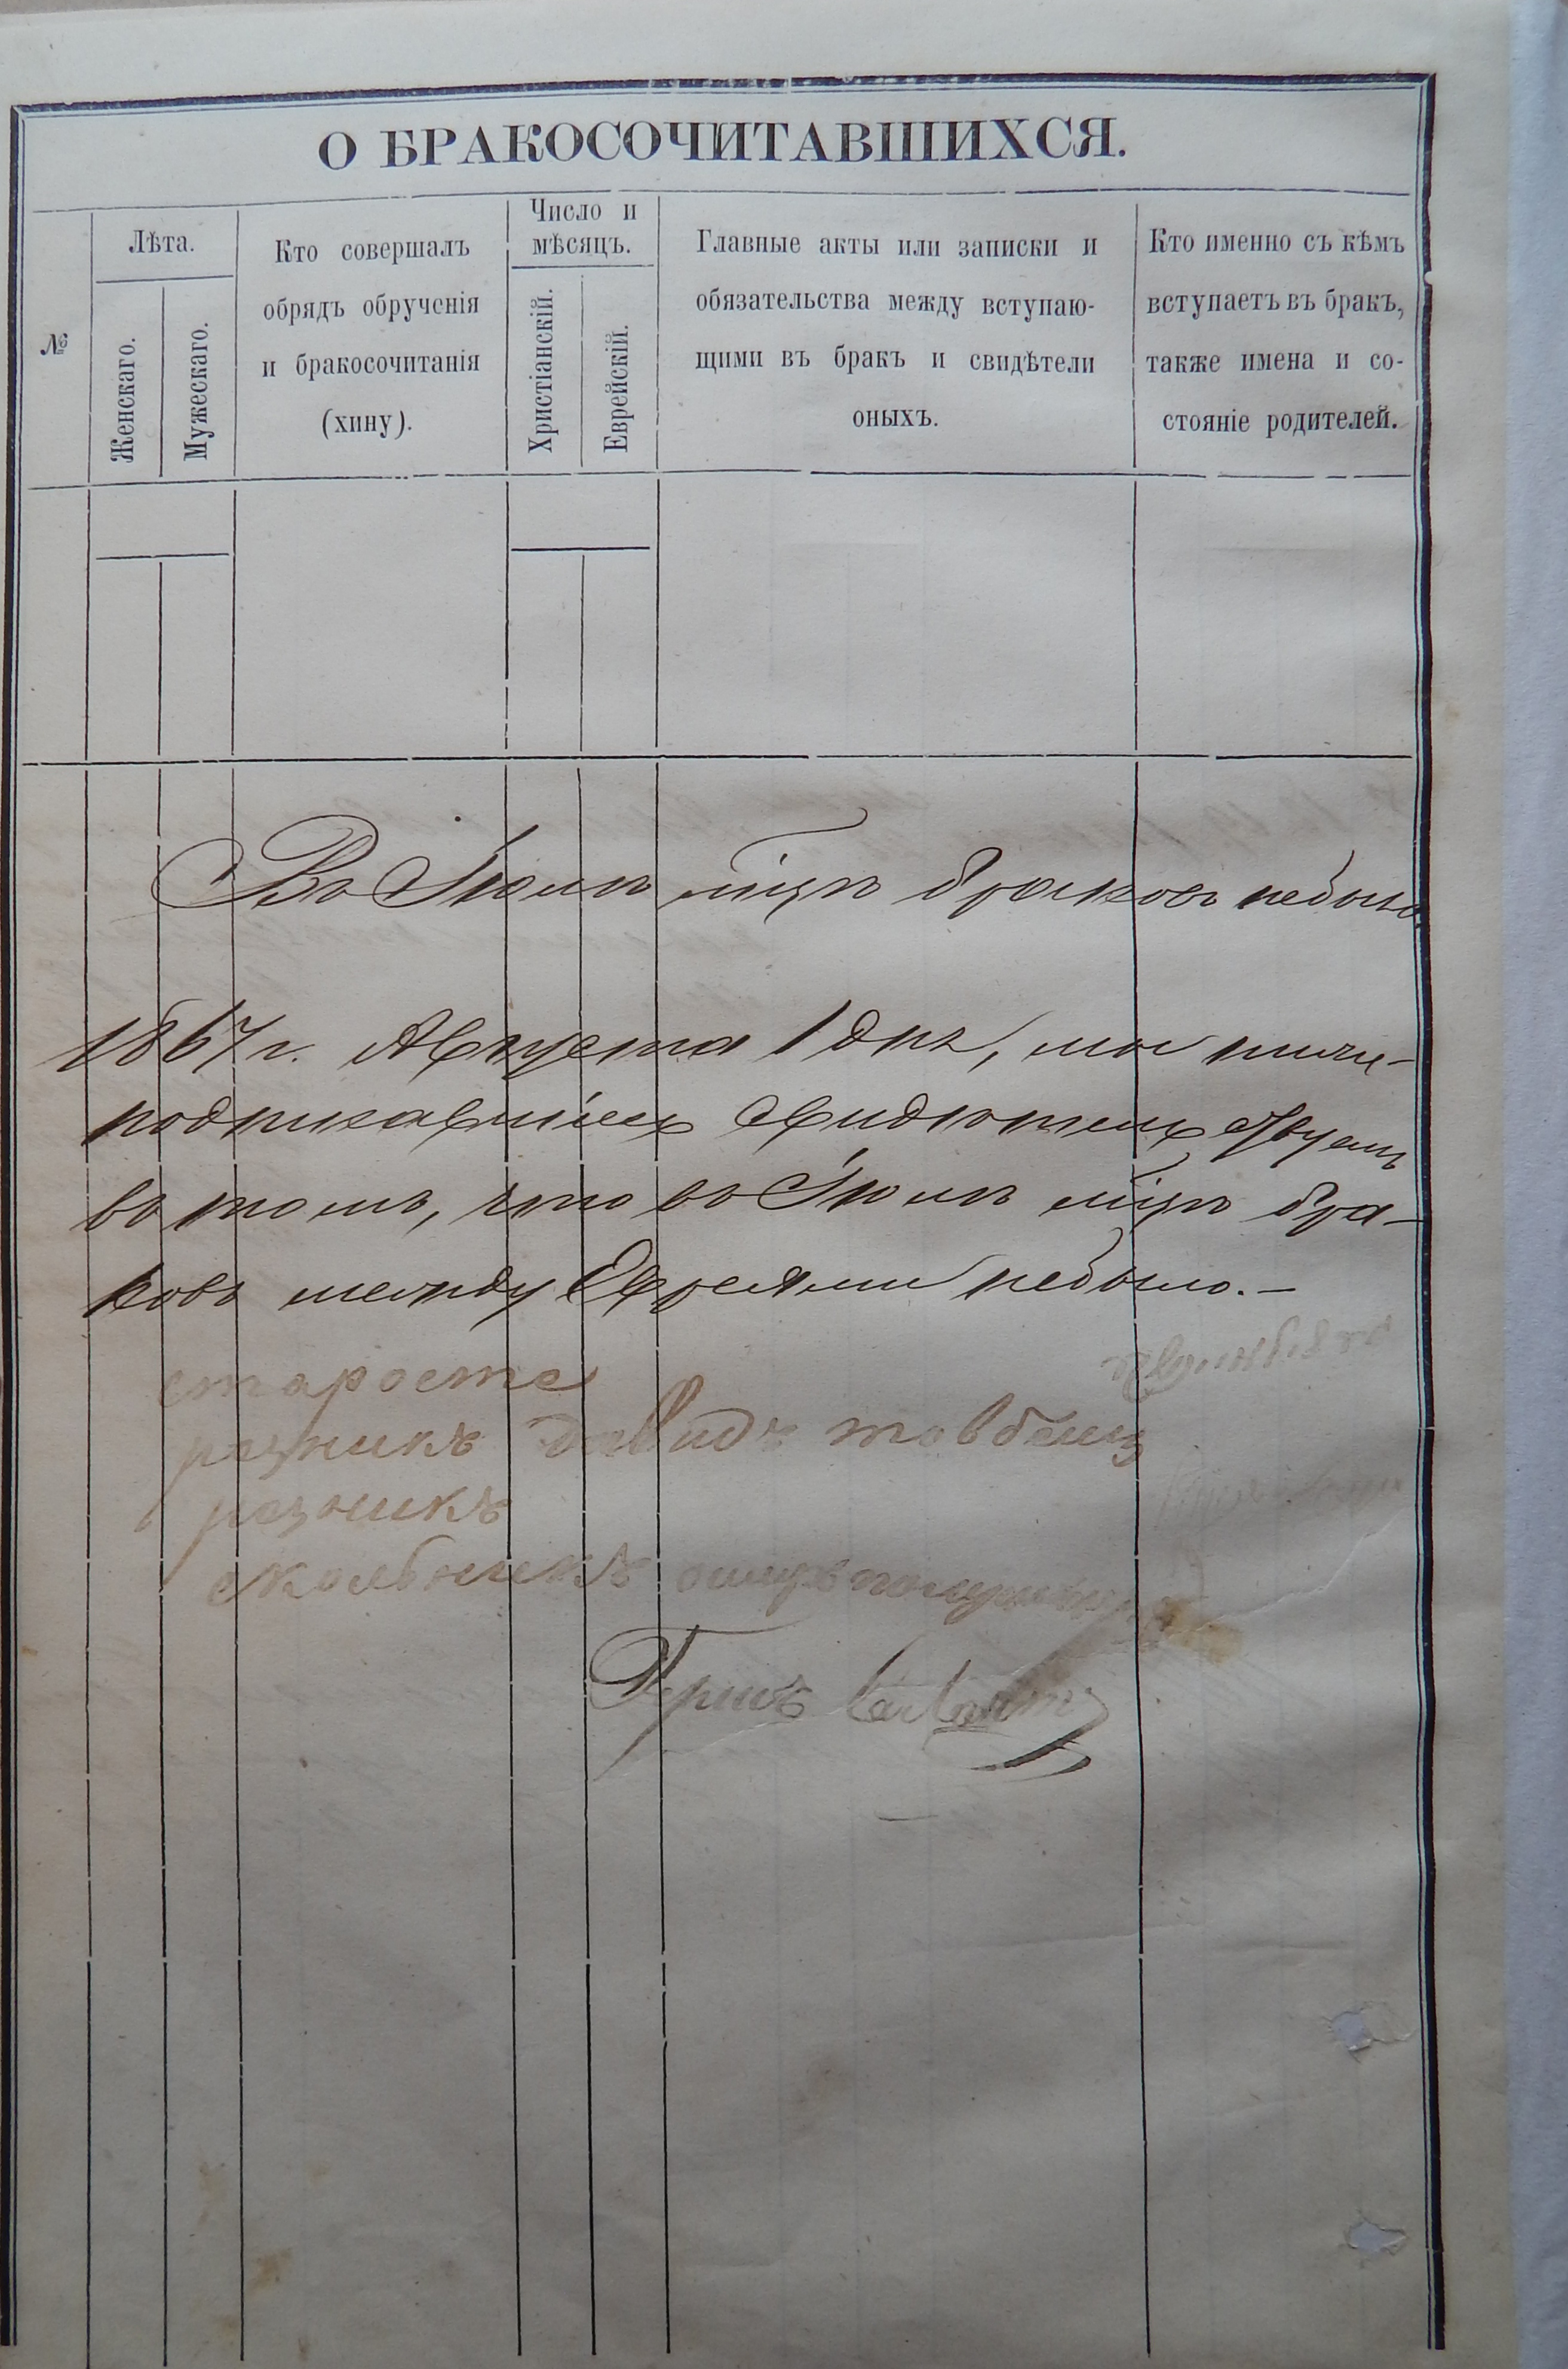 О БРАКОСОЧИТАВШИХСЯ.
№
Лѣта.
Женскаго.
Мужескаго.
Кто совершалъ
обрядъ обрученія
и бракосочитанія
(хину).
Число и
мѣсяцъ.
Христіанскій.
Еврейскій.
Главные акты или записки и
обязательства между вступаю-
щими въ бракъ и свидѣтели
оныхъ.
Кто именно съ кѣмъ
вступаетъ въ бракъ,
также имена и со-
стояніе родителей.
Въ Іюлѣ мцѣ браковъ небыло
1867 г. Августа 1 дня, мы ниже-
подписавшіеся свидѣтельствуемъ
въ томъ, что въ Іюлѣ мцѣ бра-
ковъ между Евреями небыло. –
староста
рѣзникъ давидъ
резникъ
школьникъ
Гершъ